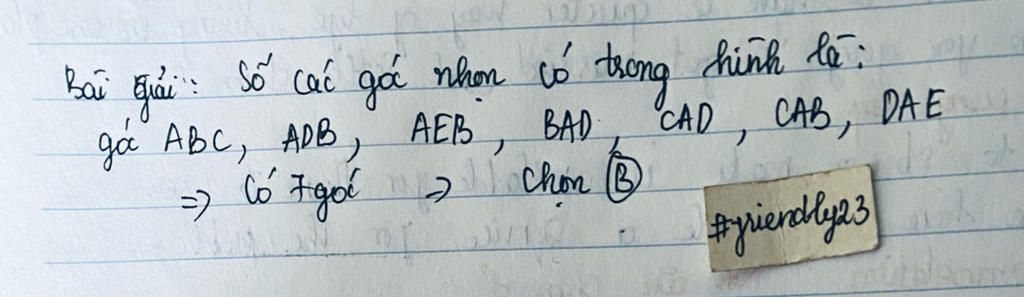 Bài giải: Số các góc nhọn có trong hình là:
góc ABC, ADB, AEB, BAD, CAD, CAB, DAE
=> Có 7 góc => Chọn Ⓑ
#friendly23